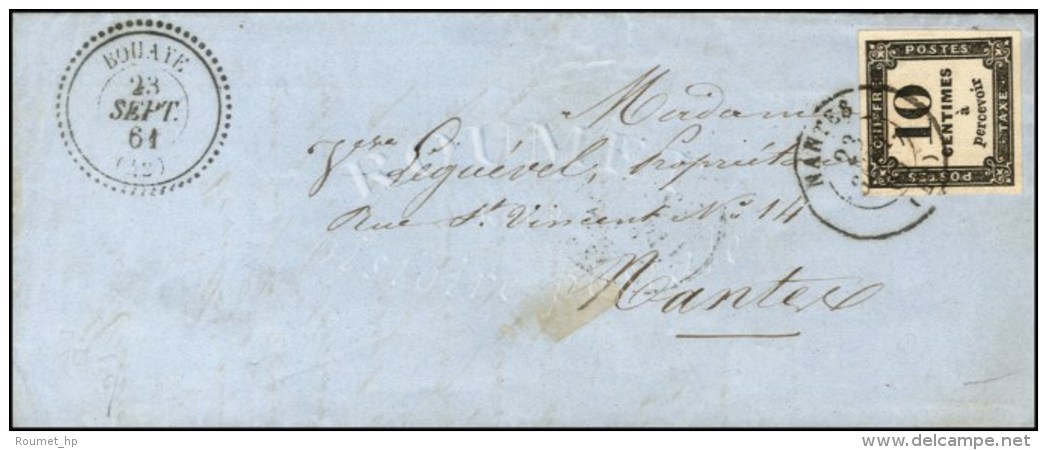 BOUAYE
23
SEPT.
61
(42)
Madame
Vve Léguével, propriét
Rue St Vincent No 14
Nantes
NANTES
23
POSTES
CHIFFRE
TAXE
POSTES
10
CENTIMES
à
percevoir
ROUMET
Roumet_hp
delcampe.net